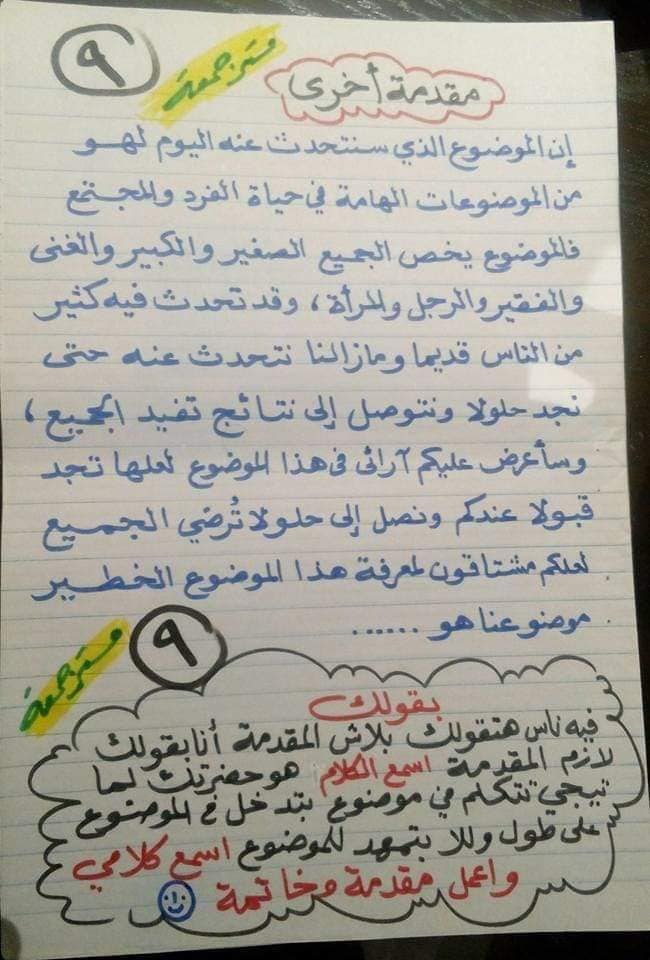 ٩
مستر جمعة
مقدمة أخرى
إن الموضوع الذي سنتحدث عنه اليوم لهو
من الموضوعات الهامة في حياة الفرد والمجتمع
فالموضوع يخص الجميع الصغير والكبير والغنى
والفقير والرجل والمرأة ، وقد تحدث فيه كثير
من الناس قديما ومازالنا نتحدث عنه حتى
نجد حلولا ونتوصل إلى نتائج تفيد الجميع ،
وسأعرض عليكم آرائى فى هذا الموضوع لعلها تجد
قبولا عندكم ونصل إلى حلولا تُرضي الجميع
لعلكم مشتاقون لمعرفة هذا الموضوع الخطير
موضوعنا هو ......
٩
مستر جمعة
بقولك
فيه ناس هتقولك بلاش المقدمة أنا بقولك
لازم المقدمة اسمع الكلام هو حضرتك لما
تيجي تتكلم في موضوع بتدخل ع الموضوع
على طول وللا بتمهد للموضوع اسمع كلامي
واعمل مقدمة وخاتمة